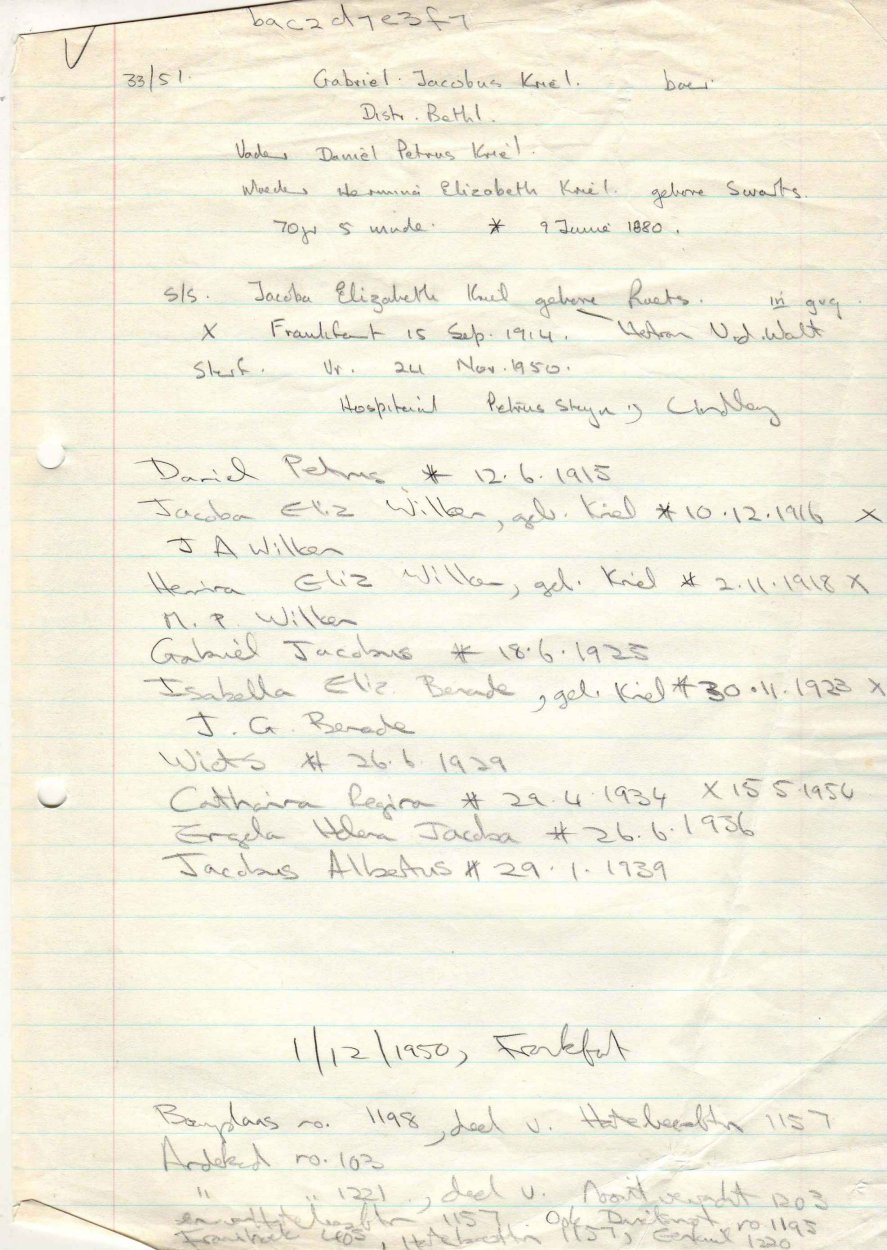 bac2d7e3f7
33/51. Gabriel Jacobus Kriel. boer
Distr. Bethl.
Vader Daniël Petrus Kriel.
Moeder Hermina Elizabeth Kriel. gebore Swarts.
70jr 5 mnde. * 9 Junie 1880.
s/s. Jacoba Elizabeth Kriel gebore in gvg.
X Frankfort 15 Sep. 1914. V.d. Walt
Sterf. Vr. 24 Nov. 1950.
Hospitaal Petrus Steyn, Lindley
Daniel Petrus * 12.6.1915
Jacoba Eliz Wilken, geb. Kriel * 10.12.1916 X
J A Wilken
Hermina Eliz Wilken, geb. Kriel * 2.11.1918 X
M. P. Wilken
Gabriël Jacobus * 18.6.1925
Isabella Eliz. , geb. Kriel * 30.11.1923 X
J. G.
* 26.6.1929
Catharina Regina * 29.4.1934 X 15 5
Engela Helena Jacoba * 26.6.1936
Jacobus Albertus * 29.1.1939
1/12/1950, Frankfort
no. 1198, deel v. 1157
no. 103
" " 1221, deel v. 1203
1157 no 1195
405, 1157, 1220